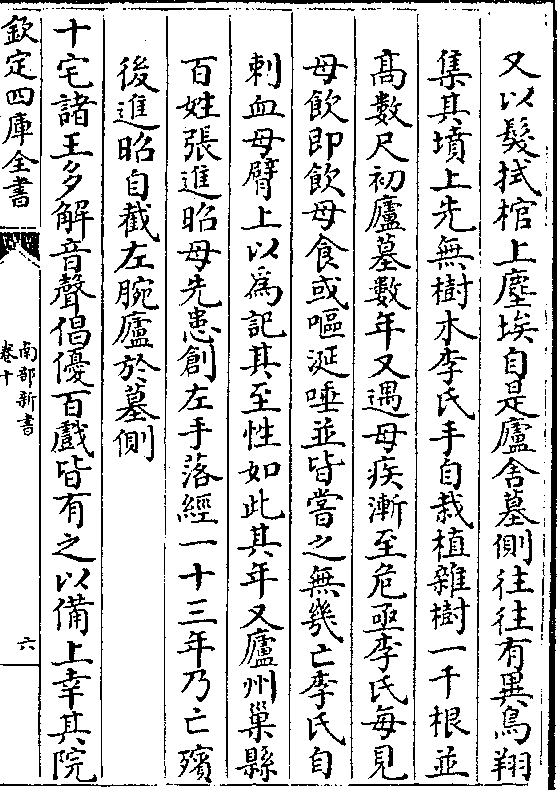 又以髮拭棺上塵埃自是廬舍墓側往往有異鳥翔
集其墳上先無樹木李氏手自栽植雜樹一千根並
髙數尺初廬墓數年又遇母疾漸至危亟李氏每見
母飲即飲母食或嘔涎唾並皆嘗之無幾亡李氏自
刺血母臂上以為記其至性如此其年又廬州巢縣
百姓張進昭母先患創左手落經一十三年乃亡殯
後進昭自截左腕廬於墓側
十宅諸王多解音聲倡優百戲皆有之以備上幸其院
欽定四庫全書
南部新書
卷十
六